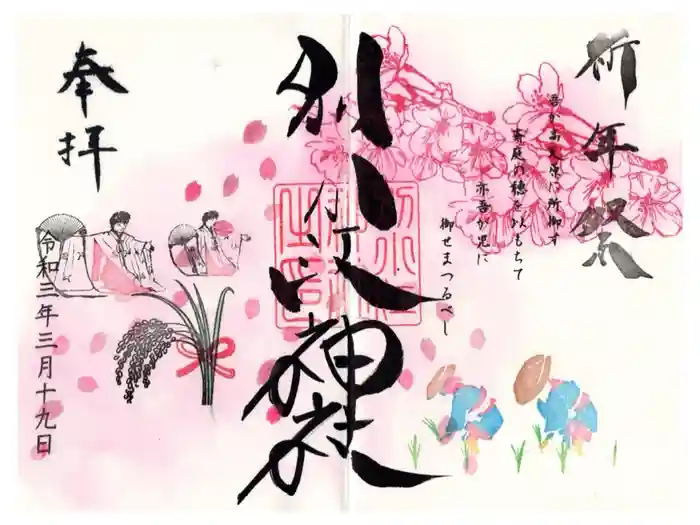 祈年祭
吾が高天原に所御す
斎庭の穂を以もちて
亦吾が児に
御せまつるべし
別小江神社
奉拝
令和三年三月十九日